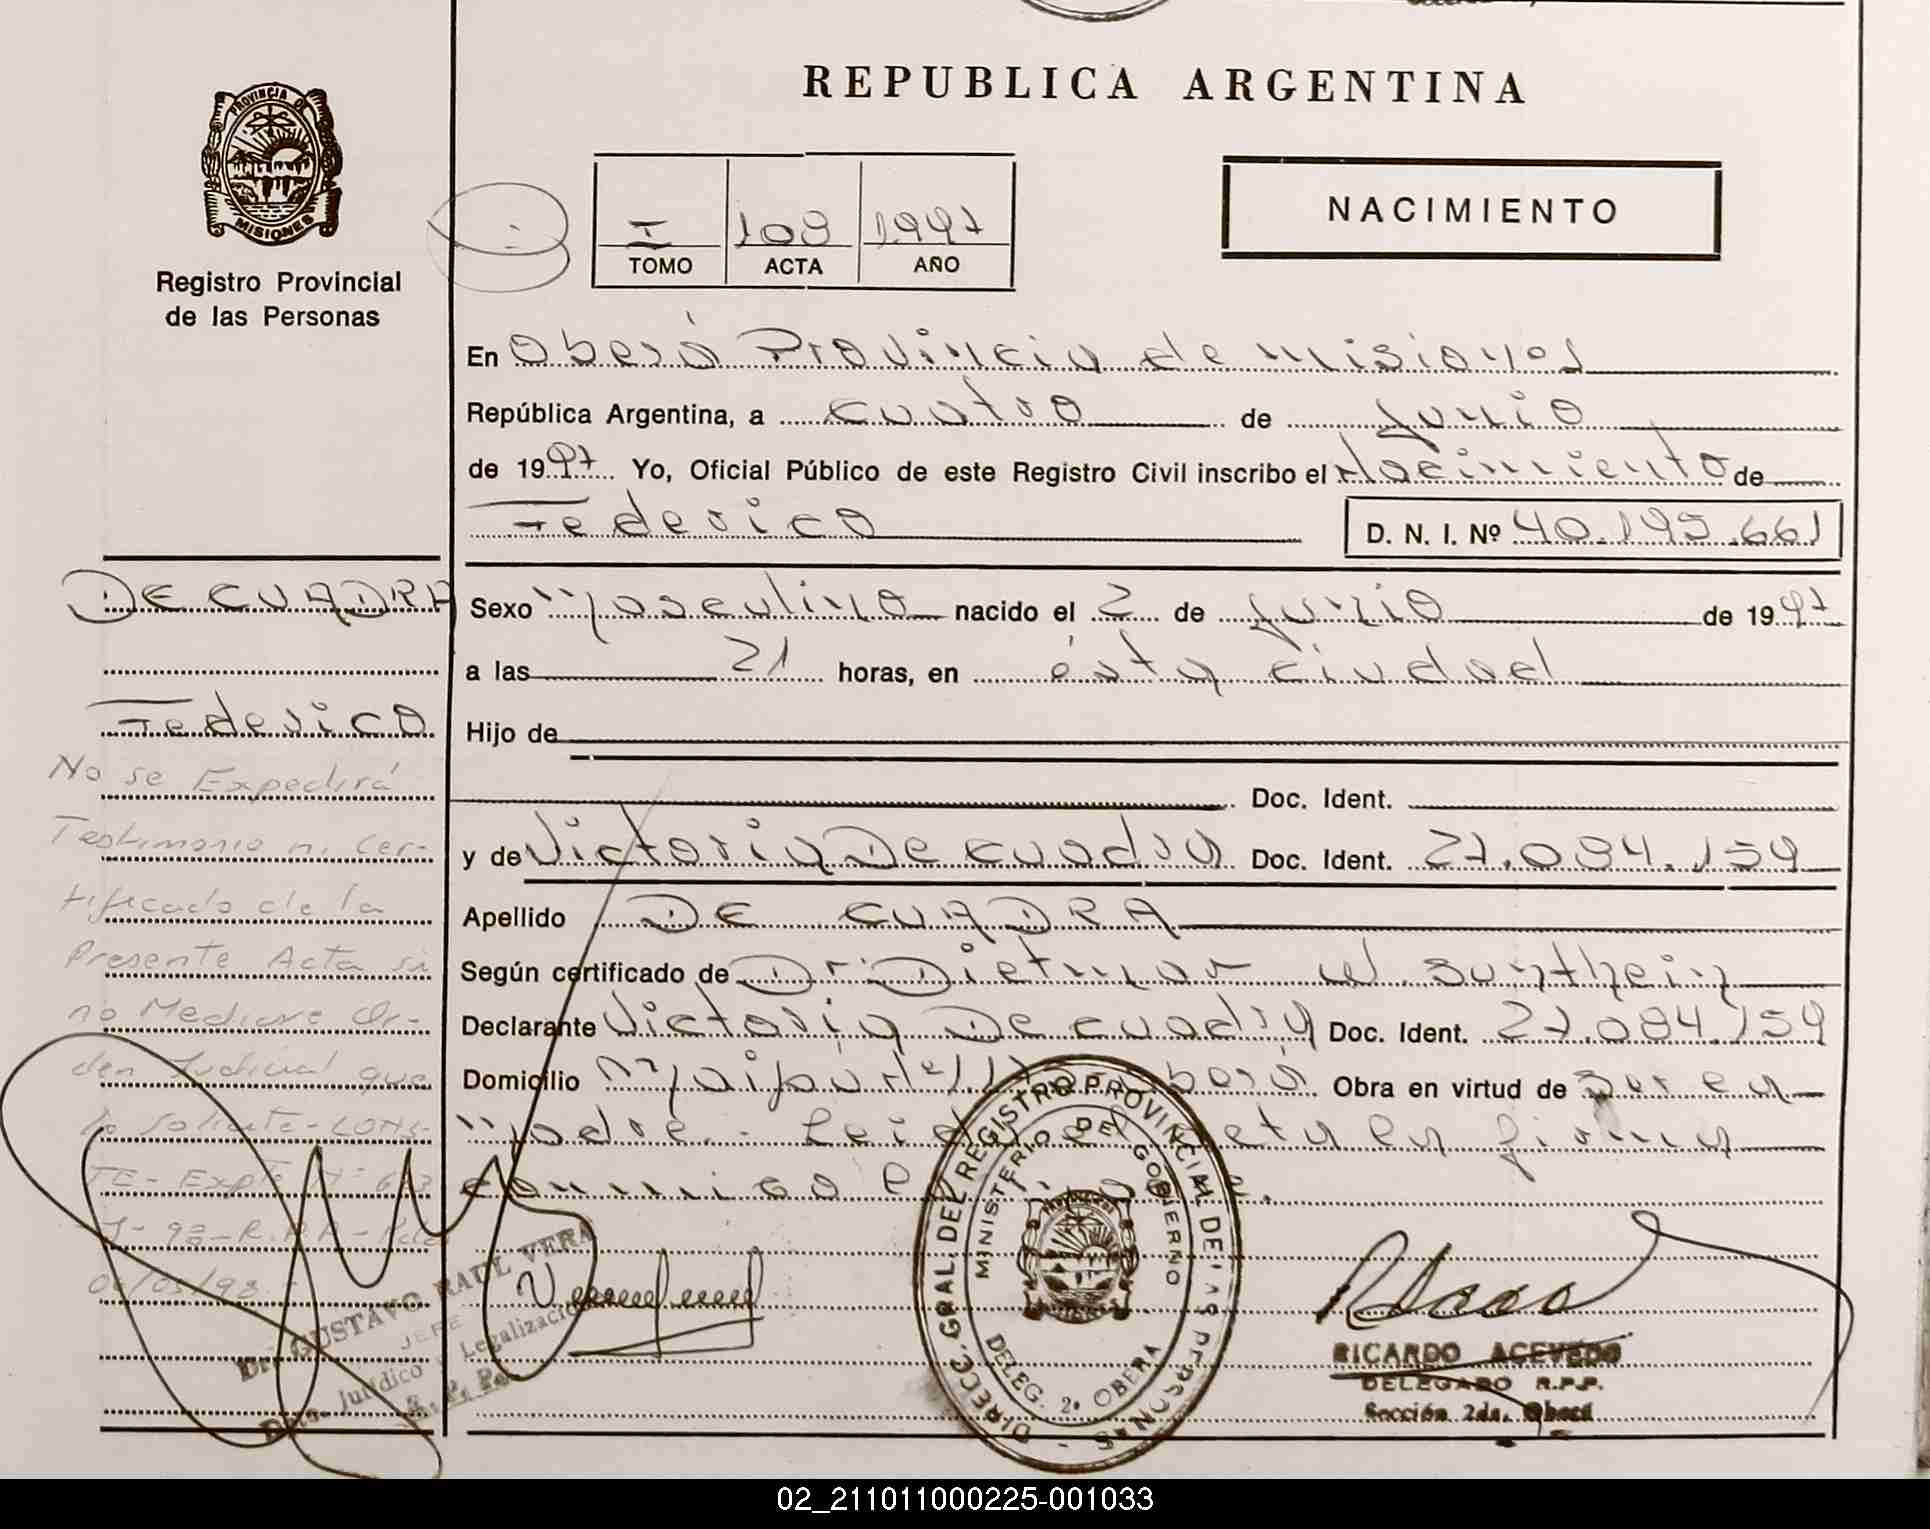 REPUBLICA ARGENTINA
PROVINCIA DE
MISIONES
Registro Provincial
de las Personas
I 108 1997
TOMO ACTA AÑO
NACIMIENTO
En Oberá Provincia de Misiones
República Argentina, a cuatro de Junio
de 1997 Yo, Oficial Público de este Registro Civil inscribo el Nacimiento de
Federico D. N. I. Nº 40.195.661
DE CUADRA
Sexo Masculino nacido el 2 de Junio de 1997
a las 21 horas, en ésta ciudad
Federico
Hijo de
No se Expedirá
Testimonio ni Cer-
tificado de la
Presente Acta si
no Mediare Or-
den Judicial que
lo solicite - CONS-
TE - Expte Nº 673
06/03/98
Doc. Ident.
y de Victoria De cuadra Doc. Ident. 27.084.159
Apellido DE CUADRA
Según certificado de Dr. Dietmar W. Sunthein
Declarante Victoria De cuadra Doc. Ident. 27.084.159
Domicilio Maipú Nº Oberá Obra en virtud de Ser la
Madre. - Leida el acta la firma
conmigo
Dr. GUSTAVO RAUL VERA
JEFE
Dpto. Jurídico y Legalización
R. P. P.
DIRECC. GRAL. DEL REGISTRO PROVINCIAL DE LAS PERSONAS
MINISTERIO DE GOBIERNO
DELEG. 2ª OBERA
RICARDO ACEVEDO
DELEGADO R.P.P.
Sección 2da. Oberá
02_211011000225-001033